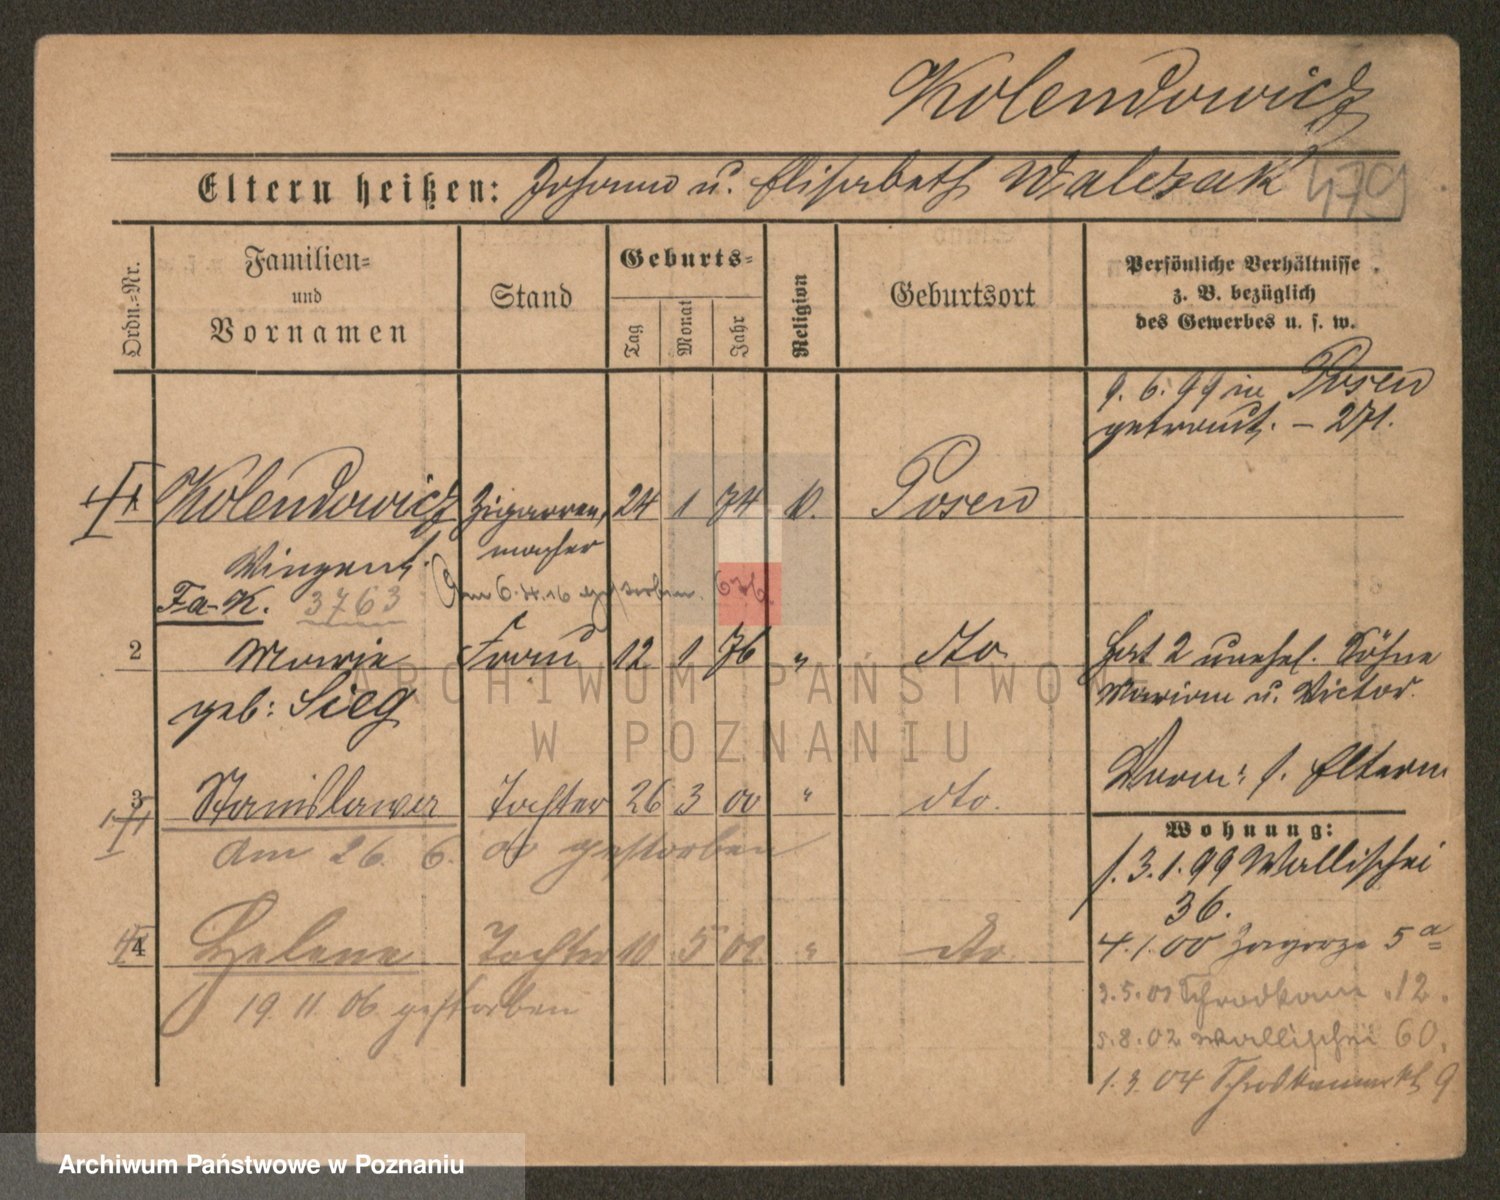 Kolendowicz
Eltern heißen: Johann u. Elisabeth Walczak 479
Ordn.-Nr.
Familien-
und
Vornamen
Stand
Geburts-
Tag
Monat
Jahr
Religion
Geburtsort
Persönliche Verhältnisse
z. B. bezüglich
des Gewerbes u. s. w.
9. 6. 99 in Posen
getraut. – 271.
1 Kolendowicz Zigarren- 24 1 74 k. Posen
Vinzent. macher
Fa-K. 3763 Am 6.4.16 gestorben. 676
2 Marie Frau 12 1 76 " dto Hat 2 unehel. Söhne
geb: Sieg Marian u. Victor.
Vorm: s. Eltern
3 Stanislawa Tochter 26 3 00 " dto.
Am 26. 6. 00 gestorben
Wohnung:
s. 3.1.99 Wallischei
36.
4 Helene Tochter 10 5 02 " dto.
4.1.00 Zagorze 5a
19. 11. 06 gestorben
3.5.01 Schrodkam 12.
5.8.02 Wallischei 60.
1.3.04 Schrodkamarkt 9
ARCHIWUM PAŃSTWOWE
W POZNANIU
Archiwum Państwowe w Poznaniu